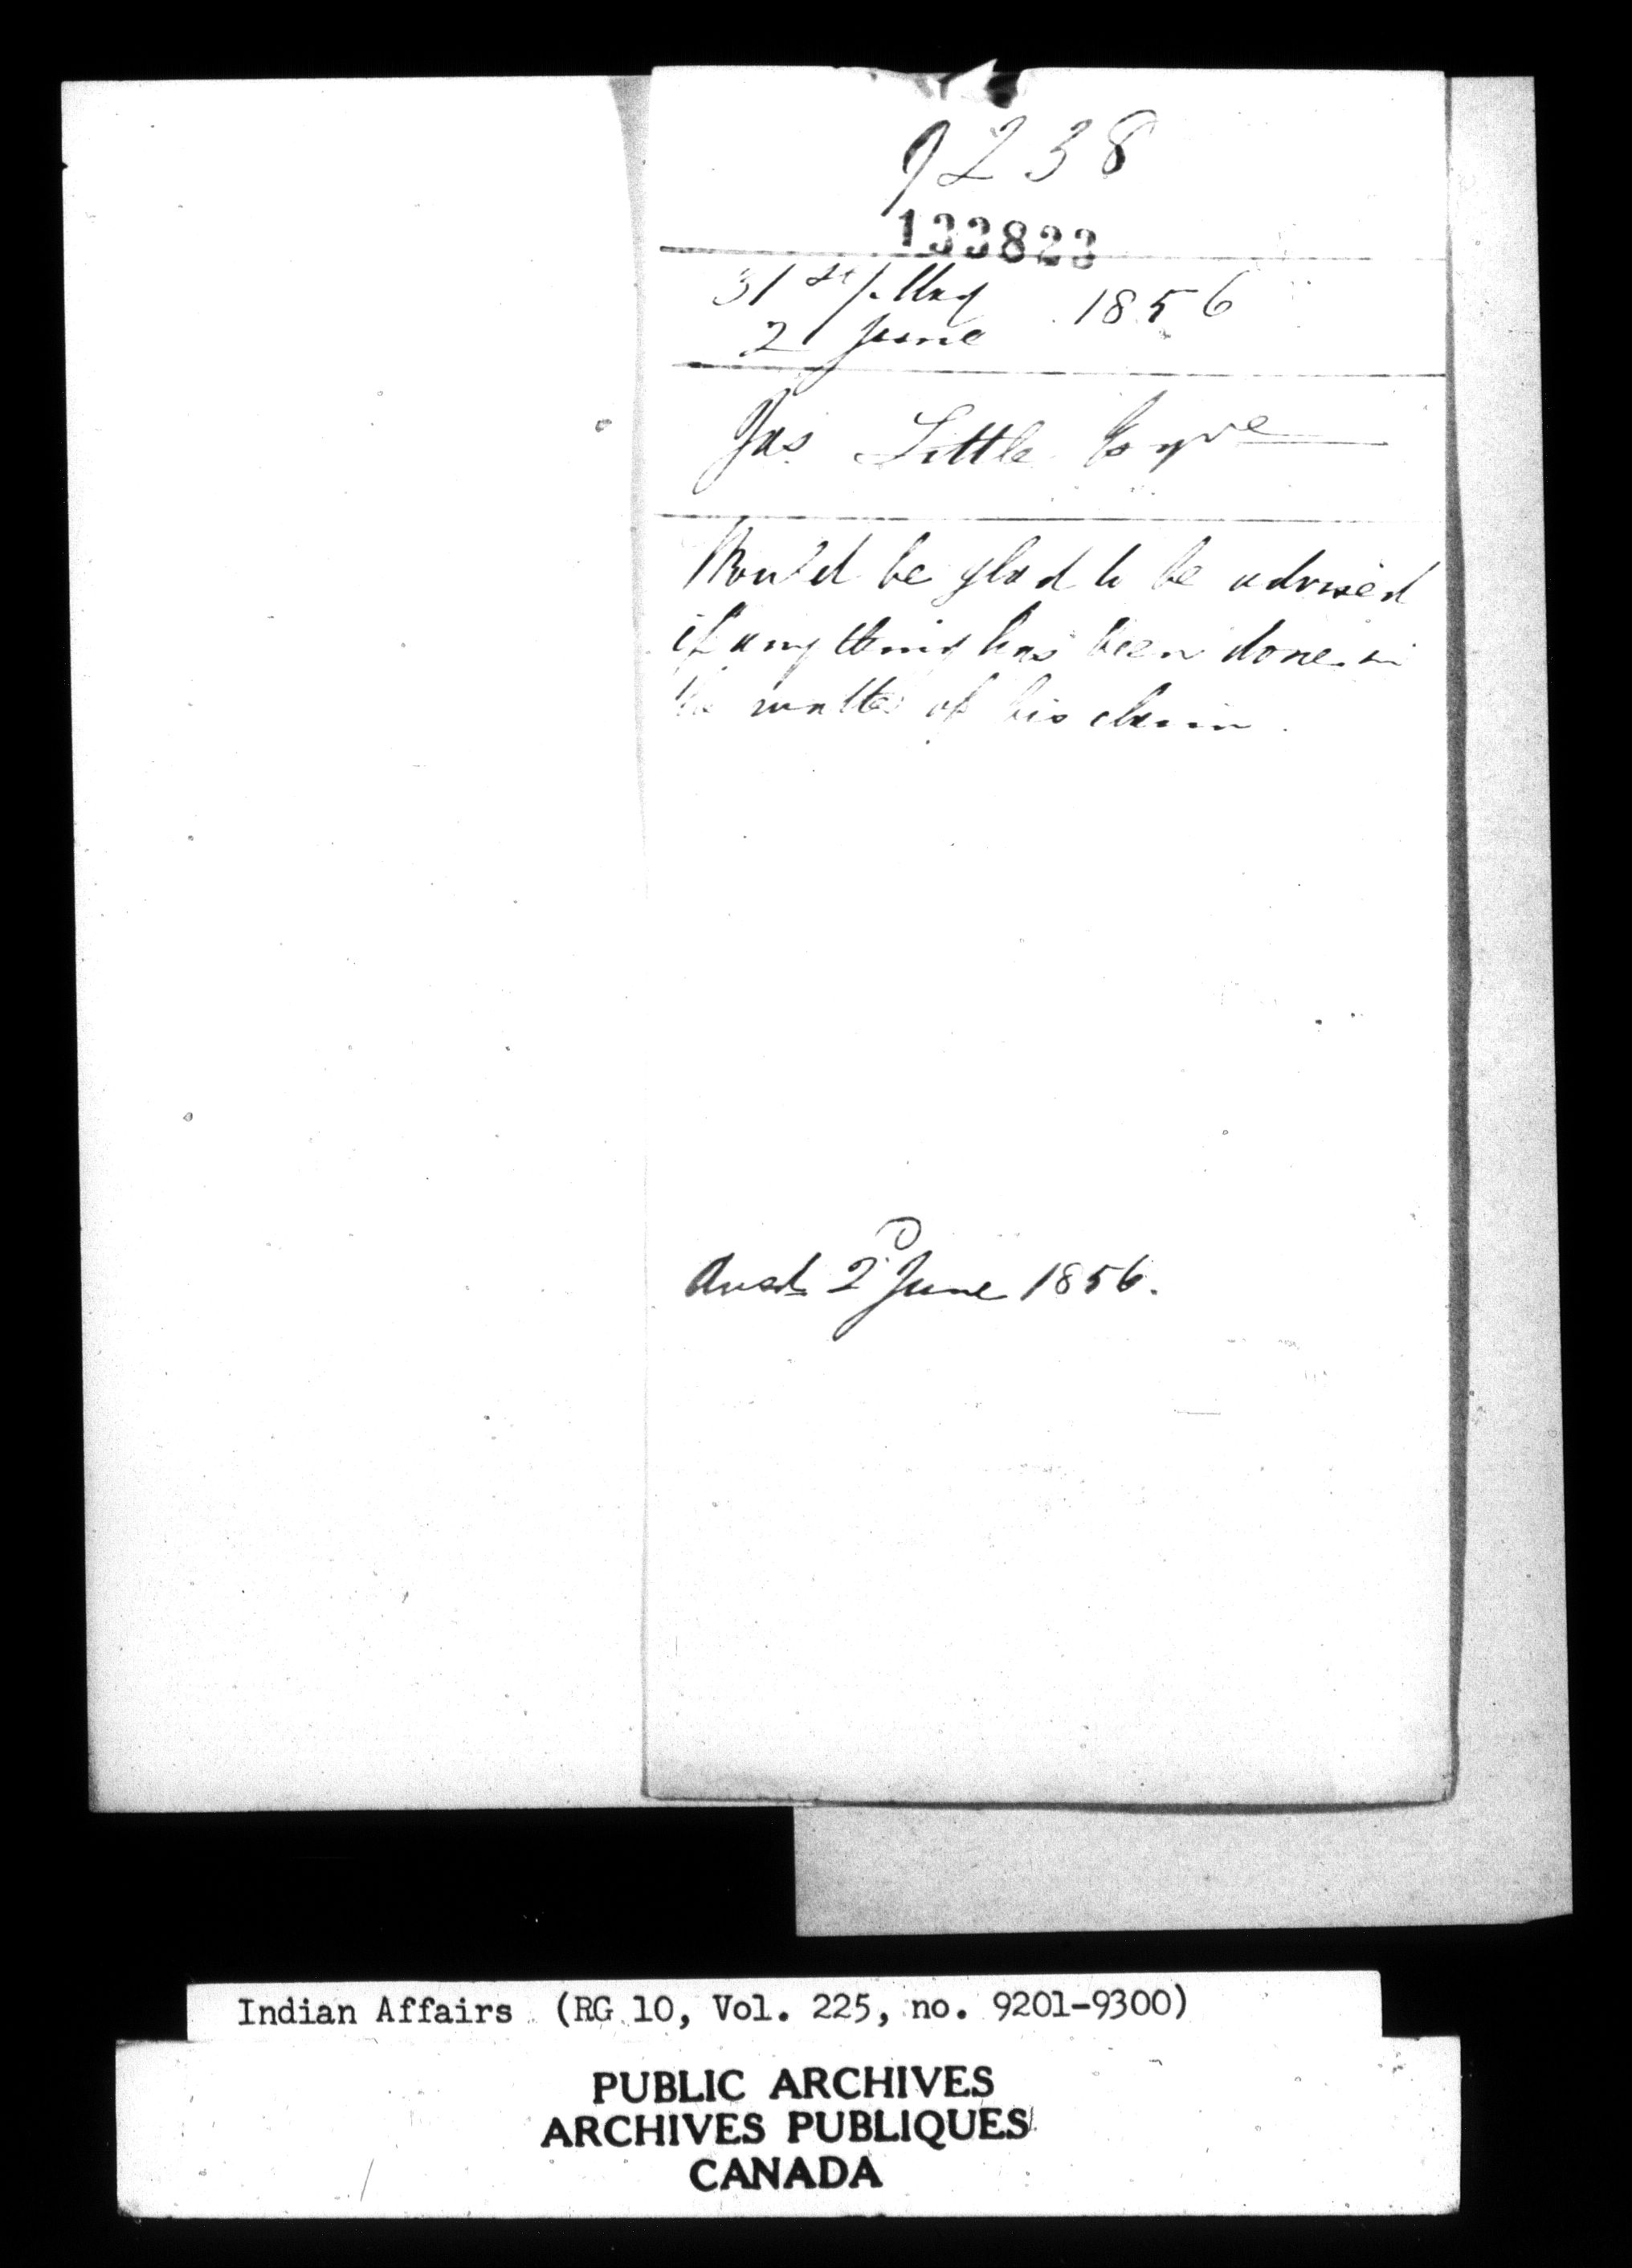 9238
133823
31st May 1856
2 June
Jas Little Esqre
Would be glad to be advised
if anything has been done in
the matter of his claim.
Ansd 2d June 1856.
Indian Affairs (RG 10, Vol. 225, no. 9201-9300)
PUBLIC ARCHIVES
ARCHIVES PUBLIQUES
CANADA